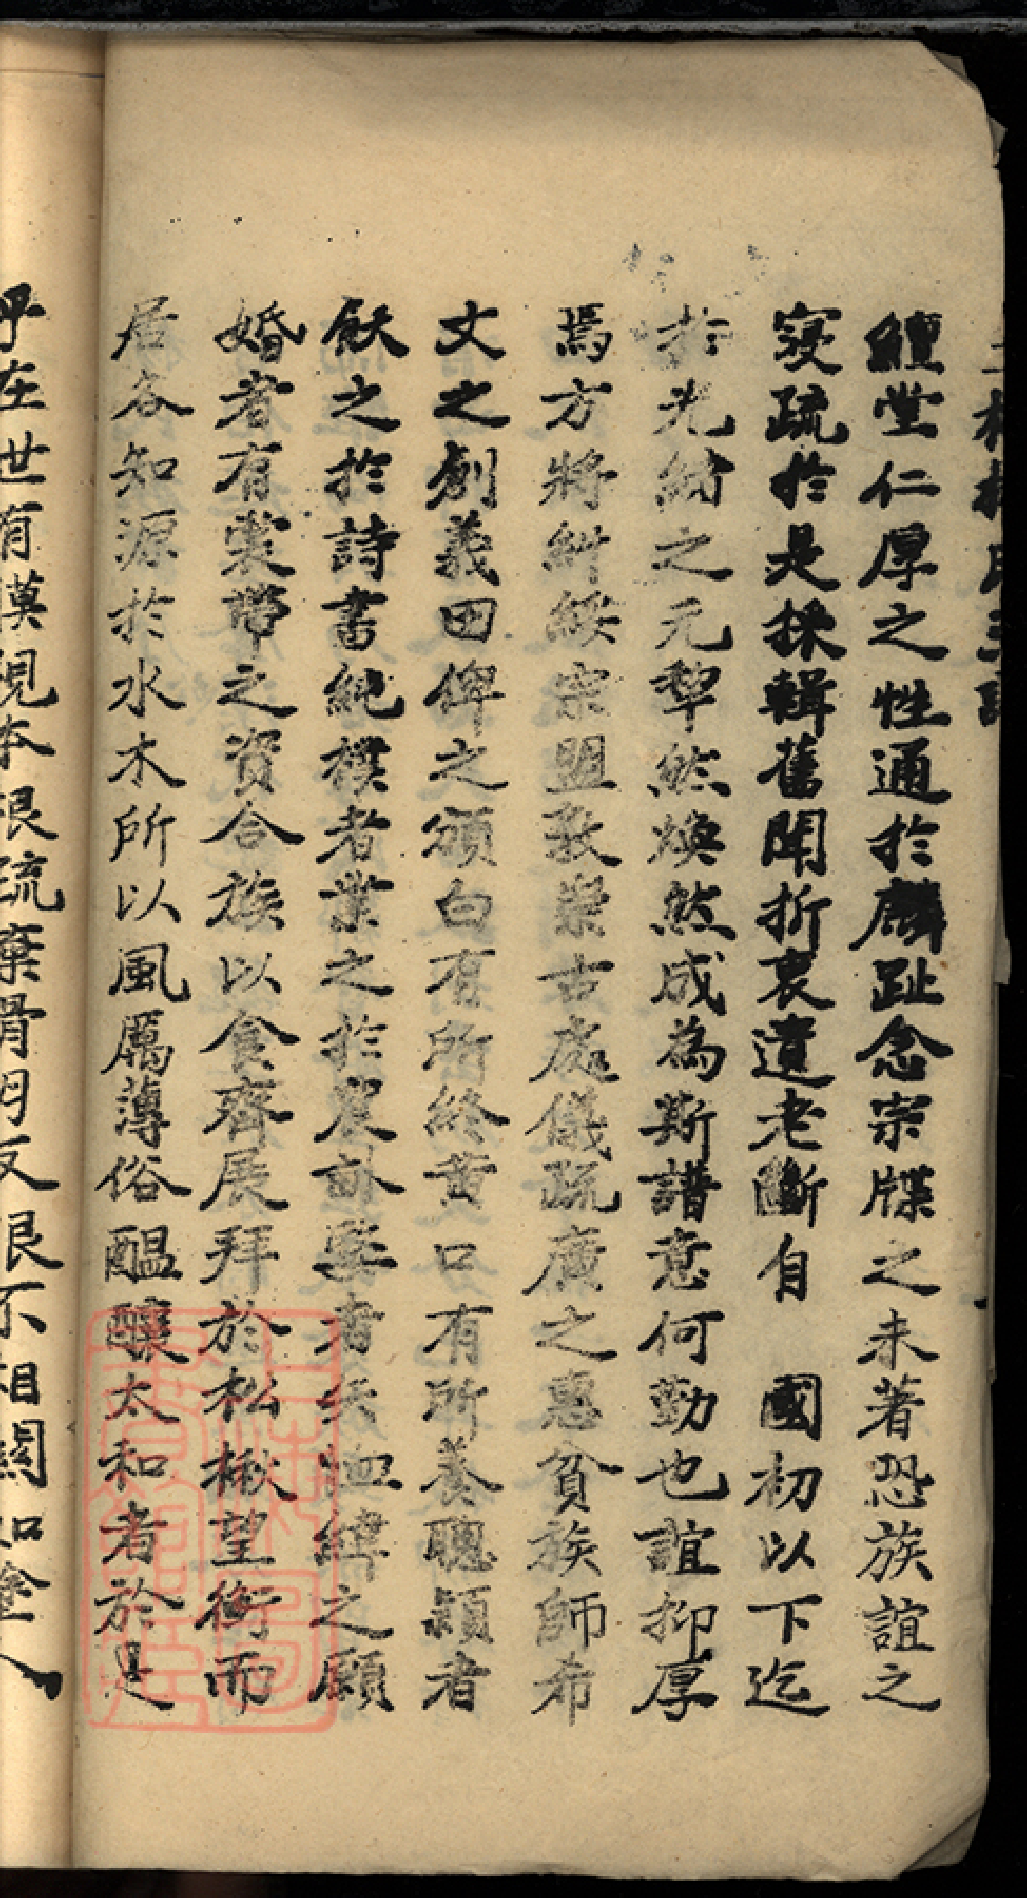 鱣堂仁厚之性通於麟趾念宗牒之未著恐族誼之
寖疏於是採輯舊聞折衷遺老斷自 國初以下迄
於光緒之元犂然煥然成為斯譜意何勤也誼抑厚
焉方將紏綏宗盟敦崇古處儀疏廣之惠貧族師希
文之創義田俾之頒白有所終黃口有所養聰穎者
飫之於詩書純樸者業之於農訟嫠者矢恤緯之願
婚者有裳帶之資合族以食齊展拜於松楸望衡而
居各知源於水木所以風厲薄俗醞釀太和者於是
乎在世有漠視本根疏棄骨肉反眼不相関如塗人